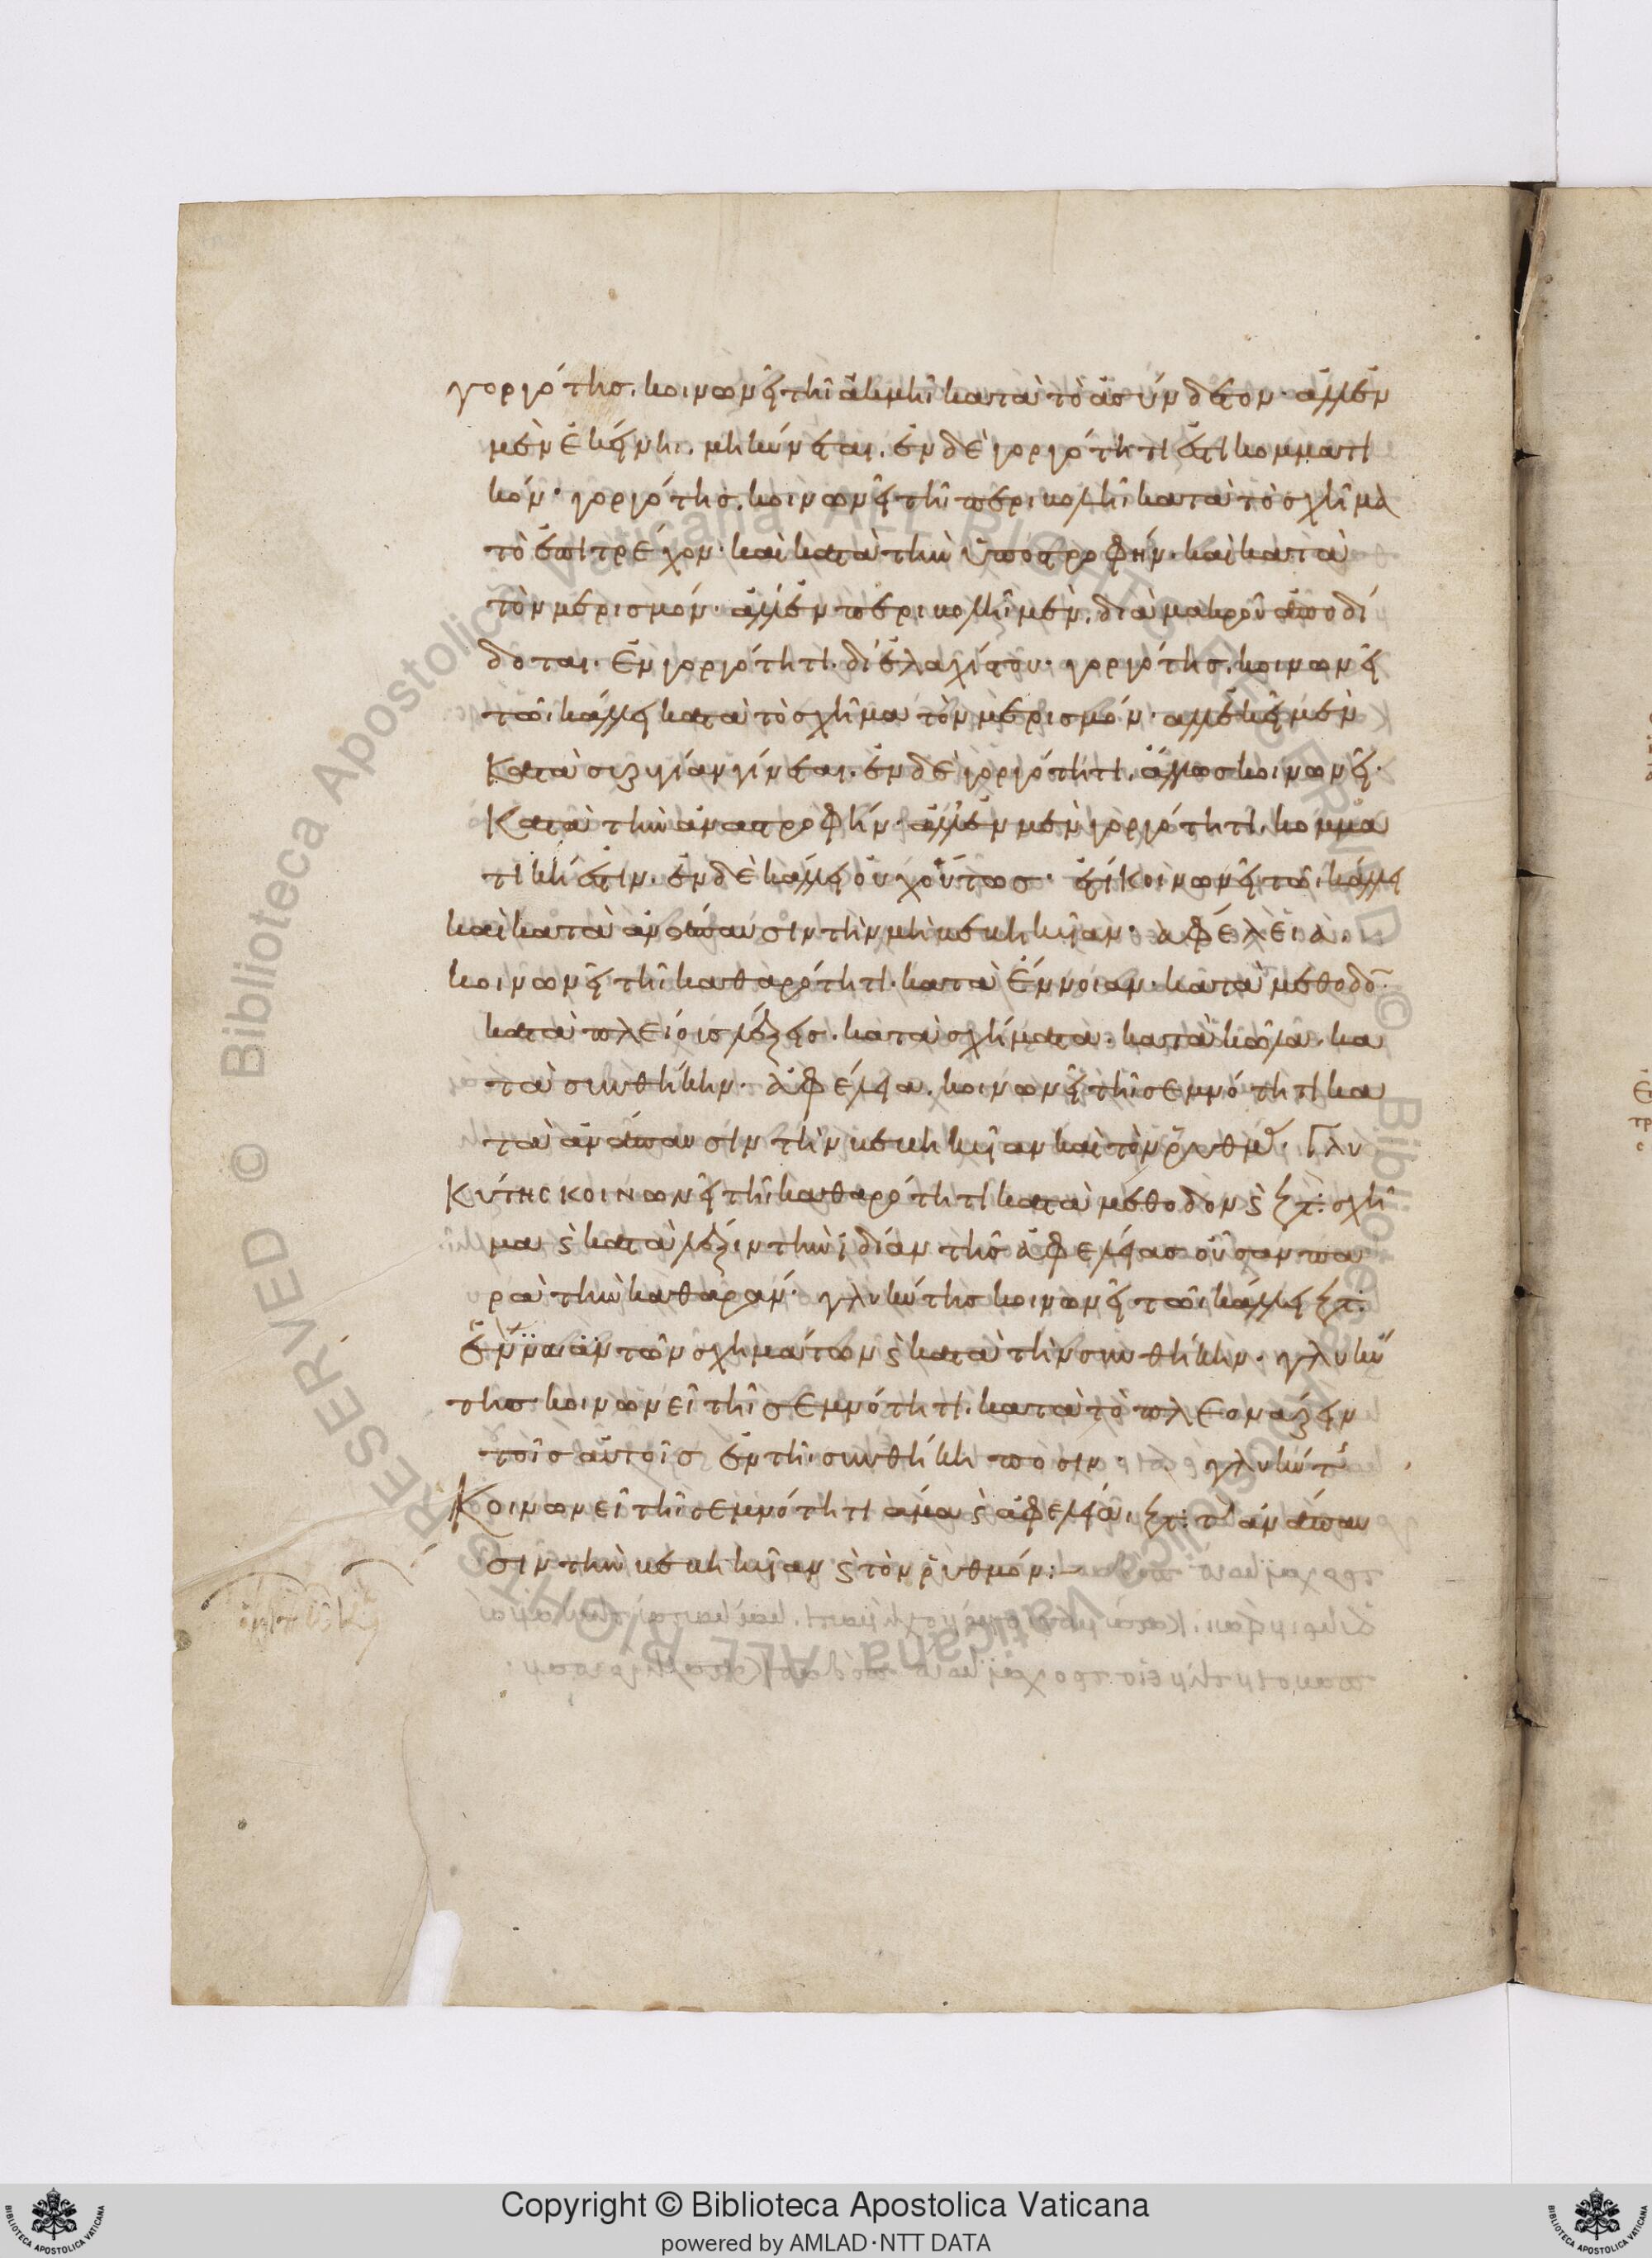 γοργότης. κοινωνεῖ τῆ ἀκμῆ κατὰ τὸ ἀσύνδετον· ἀλλ' ἐν
μὲν ἐκείνη. μηκύνεται. ἐν δὲ γοργότητι ἐστὶ κομματι
κόν· γοργότης. κοινωνεῖ τῆ περιβολῆ κατὰ τὸ σχῆμα
τὸ ἐπιτρέχον· καὶ κατὰ τὴν ὑποστροφήν. καὶ κατὰ
τὸν μερισμόν· ἀλλ' ἐν περιβολῆ μὲν. διὰ μακροῦ ἀποδί
δοται. ἐν γοργότητι. δι' ἐλαχίστου· γοργότης. κοινωνεῖ
τῶι κάλλει κατὰ τὸ σχῆμα τὸν μερισμόν· ἀλλ' ἐκεῖ μὲν
Κατὰ συζυγίαν γίνεται. ἐν δὲ γοργότητι. ἄλλως κοινωνεῖ·
Κατὰ τὴν ἀναστροφήν· ἀλλ' ἐν μὲν γοργότητι. κομμα
τική ἐστιν. ἐν δὲ κάλλει οὐχ οὕτως· ἔτι κοινωνεῖ τῶι κάλλει
καὶ κατὰ ἀνάπαυσιν τὴν μὴ βεβηκυῖαν· ἀφέλεια.
κοινωνεῖ τῆ καθαρότητι. κατὰ ἔννοιαν· κατὰ μέθοδον·
κατὰ πλείους λέξεις. κατὰ σχήματα. κατὰ κῶλα. κα
τὰ συνθήκην· ἀφέλεια. κοινωνεῖ τῆ σεμνότητι κα
τὰ ἀνάπαυσιν τὴν βεβηκυῖαν καὶ τὸν ῥυθμόν· Γλυ
Κύτης κοινωνεῖ τῆ καθαρότητι κατὰ μέθοδον ϛ κτ: σχῆ
μα ϛ κατὰ λέξιν τὴν ἰδίαν τῆς ἀφελείας οὖσαν πα
ρὰ τὴν καθαράν· γλυκύτης κοινωνεῖ τῶι κάλλει κτ:
ἔννοιαν τῶν σχημάτων ϛ κατὰ τὴν συνθήκην· γλυκύ
της κοινωνεῖ τῆ σεμνότητι. κατὰ τὸ πλεονάζειν
τοῖς αὐτοῖς ἐν τῆ συνθήκη ποσιν· γλυκύτ
Κοινωνεῖ τῆ σεμνότητι ἅμα ϛ ἀφελεία. κτ: τ ἀνάπαυ
σιν τὴν βεβηκυῖαν ϛ τὸν ῥυθμόν:–
Copyright © Biblioteca Apostolica Vaticana
powered by AMLAD·NTT DATA